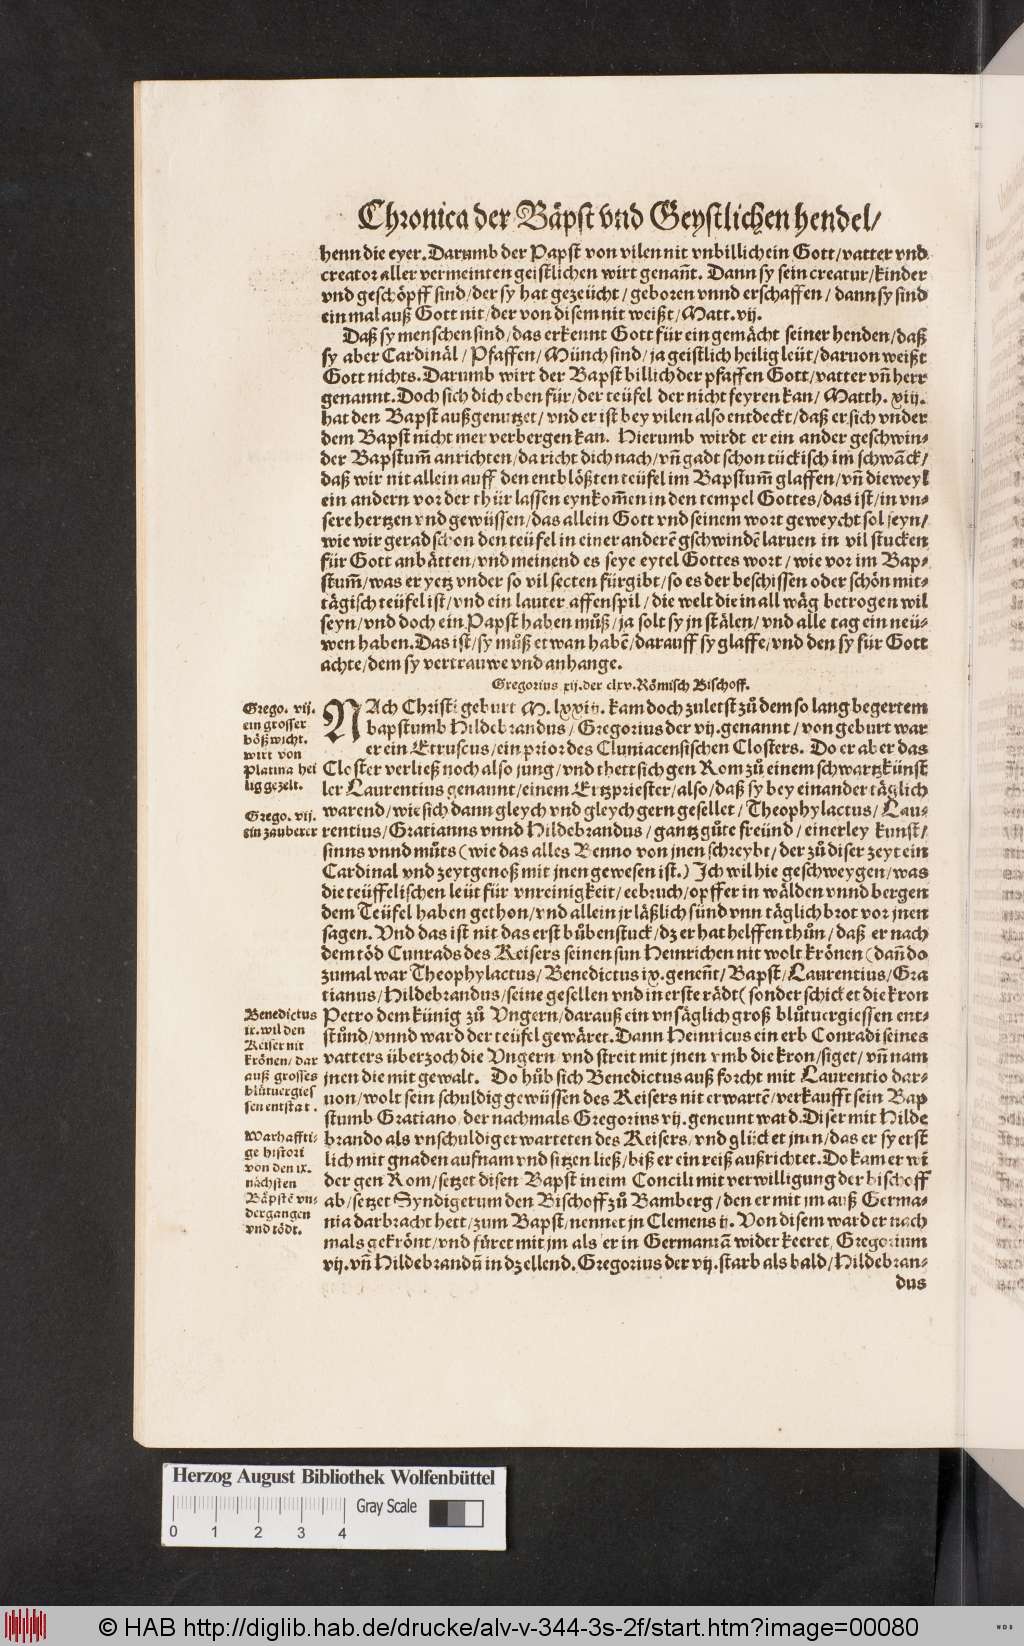 Chronica der Bäpst vnd Geystlichen hendel/
henn die eyer. Darumb der Papst von vilen nit vnbillich ein Gott/ vatter vnd
creator aller vermeinten geistlichen wirt genañt. Dann sy sein creatur/ kinder
vnd geschöpff sind/ der sy hat gezeücht/ geboren vnnd erschaffen/ dann sy sind
ein mal auß Gott nit/ der von disem nit weißt/ Matt. vij.
Daß sy menschen sind/ das erkennt Gott für ein gemächt seiner henden/ daß
sy aber Cardinäl/ Pfaffen/ Münch sind/ ja geistlich heilig leüt/ daruon weißt
Gott nichts. Darumb wirt der Bapst billich der pfaffen Gott/ vatter vñ herr
genannt. Doch sich dich eben für/ der teüfel der nicht feyren kan/ Matth. xiij.
hat den Bapst außgenutzet/ vnd er ist bey vilen also entdeckt/ daß er sich vnder
dem Bapst nicht mer verbergen kan. Hierumb wirdt er ein ander geschwin-
der Bapstum̃ anrichten/ da richt dich nach/ vñ gadt schon tückisch im schwãck/
daß wir nit allein auff den entblößten teüfel im Bapstum̃ glaffen/ vñ dieweyl
ein andern vor der thür lassen eynkom̃en in den tempel Gottes/ das ist/ in vn-
sere hertzen vnd gewüssen/ das allein Gott vnd seinem wort geweycht sol seyn/
wie wir gerad schon den teüfel in einer anderẽ gschwindẽ laruen in vil stucken
für Gott anbätten/ vnd meinend es seye eytel Gottes wort/ wie vor im Bap-
stum̃/ was er yetz vnder so vil secten fürgibt/ so es der beschissen oder schön mit-
tägisch teüfel ist/ vnd ein lauter affenspil/ die welt die in all wäg betrogen wil
seyn/ vnd doch ein Papst haben můß/ ja solt sy jn stälen/ vnd alle tag ein neü-
wen haben. Das ist/ sy můß etwan habẽ/ darauff sy glaffe/ vnd den sy für Gott
achte/ dem sy vertrauwe vnd anhange.
Gregorius xij. der clxv. Römisch Bischoff.
Grego. vij.
ein grosser
bößwicht.
wirt von
Platina hei
lig gezelt.
Grego. vij.
ein zauberer
NAch Christi geburt M. lxxiij. kam doch zuletst zů dem so lang begertem
bapstumb Hildebrandus/ Gregorius der vij. genannt/ von geburt war
er ein Etruscus/ ein prior des Cluniacensischen Closters. Do er aber das
Closter verließ noch also jung/ vnd thett sich gen Rom zů einem schwartzkünst
ler Laurentius genannt/ einem Ertzpriester/ also/ daß sy bey einander täglich
warend/ wie sich dann gleych vnd gleych gern gesellet/ Theophylactus/ Lau-
rentius/ Gratianns vnnd Hildebrandus/ gantz gůte freünd/ einerley kunst/
sinns vnnd můts (wie das alles Benno von jnen schreybt/ der zů diser zeyt ein
Cardinal vnd zeytgenoß mit jnen gewesen ist.) Ich wil hie geschweygen/ was
die teüffelischen leüt für vnreinigkeit/ eebruch/ opffer in wälden vnnd bergen
dem Teüfel haben gethon/ vnd allein jr läßlich sünd vnn täglich brot vor jnen
sagen. Vnd das ist nit das erst bůbenstuck/ dz er hat helffen thůn/ daß er nach
dem töd Cunrads des Keisers seinen sun Heinrichen nit wolt krönen (dañ do
zumal war Theophylactus/ Benedictus ix. genent̃/ Bapst/ Laurentius/ Gra
tianus/ Hildebrandus/ seine gesellen vnd in erste rädt (sonder schicket die kron
Petro dem künig zů Vngern/ darauß ein vnsäglich groß blůtuergiessen ent-
stůnd/ vnnd ward der teüfel gewäret. Dann Heinricus ein erb Conradi seines
vatters überzoch die Vngern/ vnd streit mit jnen vmb die kron/ siget/ vñ nam
jnen die mit gewalt. Do hůb sich Benedictus auß forcht mit Laurentio dar-
uon/ wolt sein schuldig gewüssen des Keisers nit erwartẽ/ verkaufft sein Bap
stumb Gratiano/ der nachmals Gregorius vij. genennt ward. Diser mit Hilde
brando als vnschuldiget warteten des Keisers/ vnd glücket jnen/ das er sy erst
lich mit gnaden aufnam vnd sitzen ließ/ biß er ein reiß außrichtet. Do kam er wi
der gen Rom/ setzet disen Bapst in eim Concili mit verwilligung der bischoff
ab/ setzet Syndigerum den Bischoff zů Bamberg/ den er mit jm auß Germa-
nia dar bracht hett/ zum Bapst/ nennet jn Clemens ij. Von disem ward er nach
mals gekrönt/ vnd füret mit jm als er in Germaniã wider keeret/ Gregorium
vij. vñ Hildebrandũ in dz ellend. Gregorius der vij. starb als bald/ Hildebran-
dus
Benedictus
ix. wil den
Keiser nit
krönen/ dar
auß grosses
blůtuergies
sen entstat.
Warhaffti-
ge histori
von den ix.
nächsten
Bäpstẽ vn-
dergangen
vnd tödt.
Herzog August Bibliothek Wolfenbüttel
Gray Scale
0 1 2 3 4
© HAB http://diglib.hab.de/drucke/alv-v-344-3s-2f/start.htm?image=00080